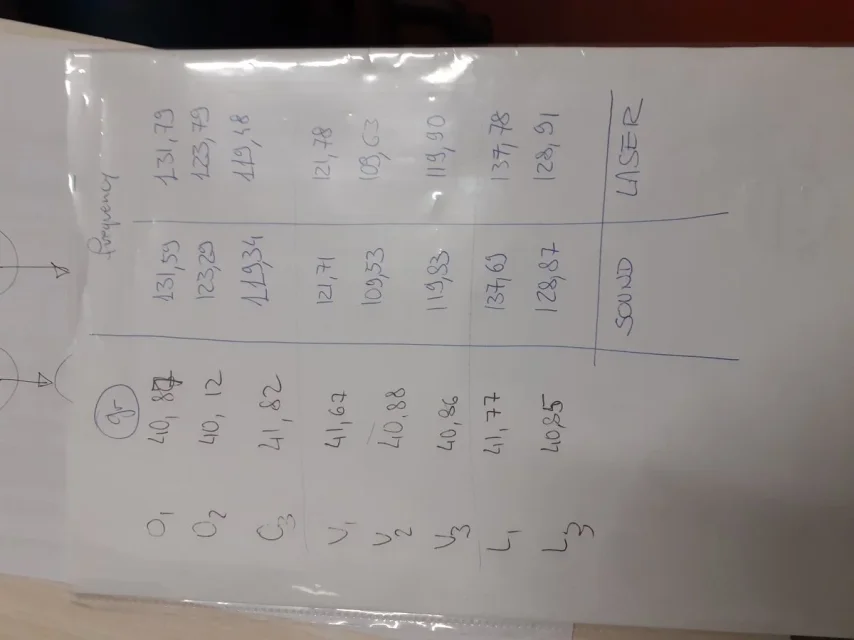 gr frequency
O1 40,87 131,59 131,79
O2 40,12 123,29 123,79
O3 41,82 119,34 119,48
V1 41,67 121,71 121,78
V2 40,88 109,53 109,63
V3 40,86 119,83 119,90
L1 41,77 137,69 137,78
L3 40,85 128,87 128,91
SOUND LASER